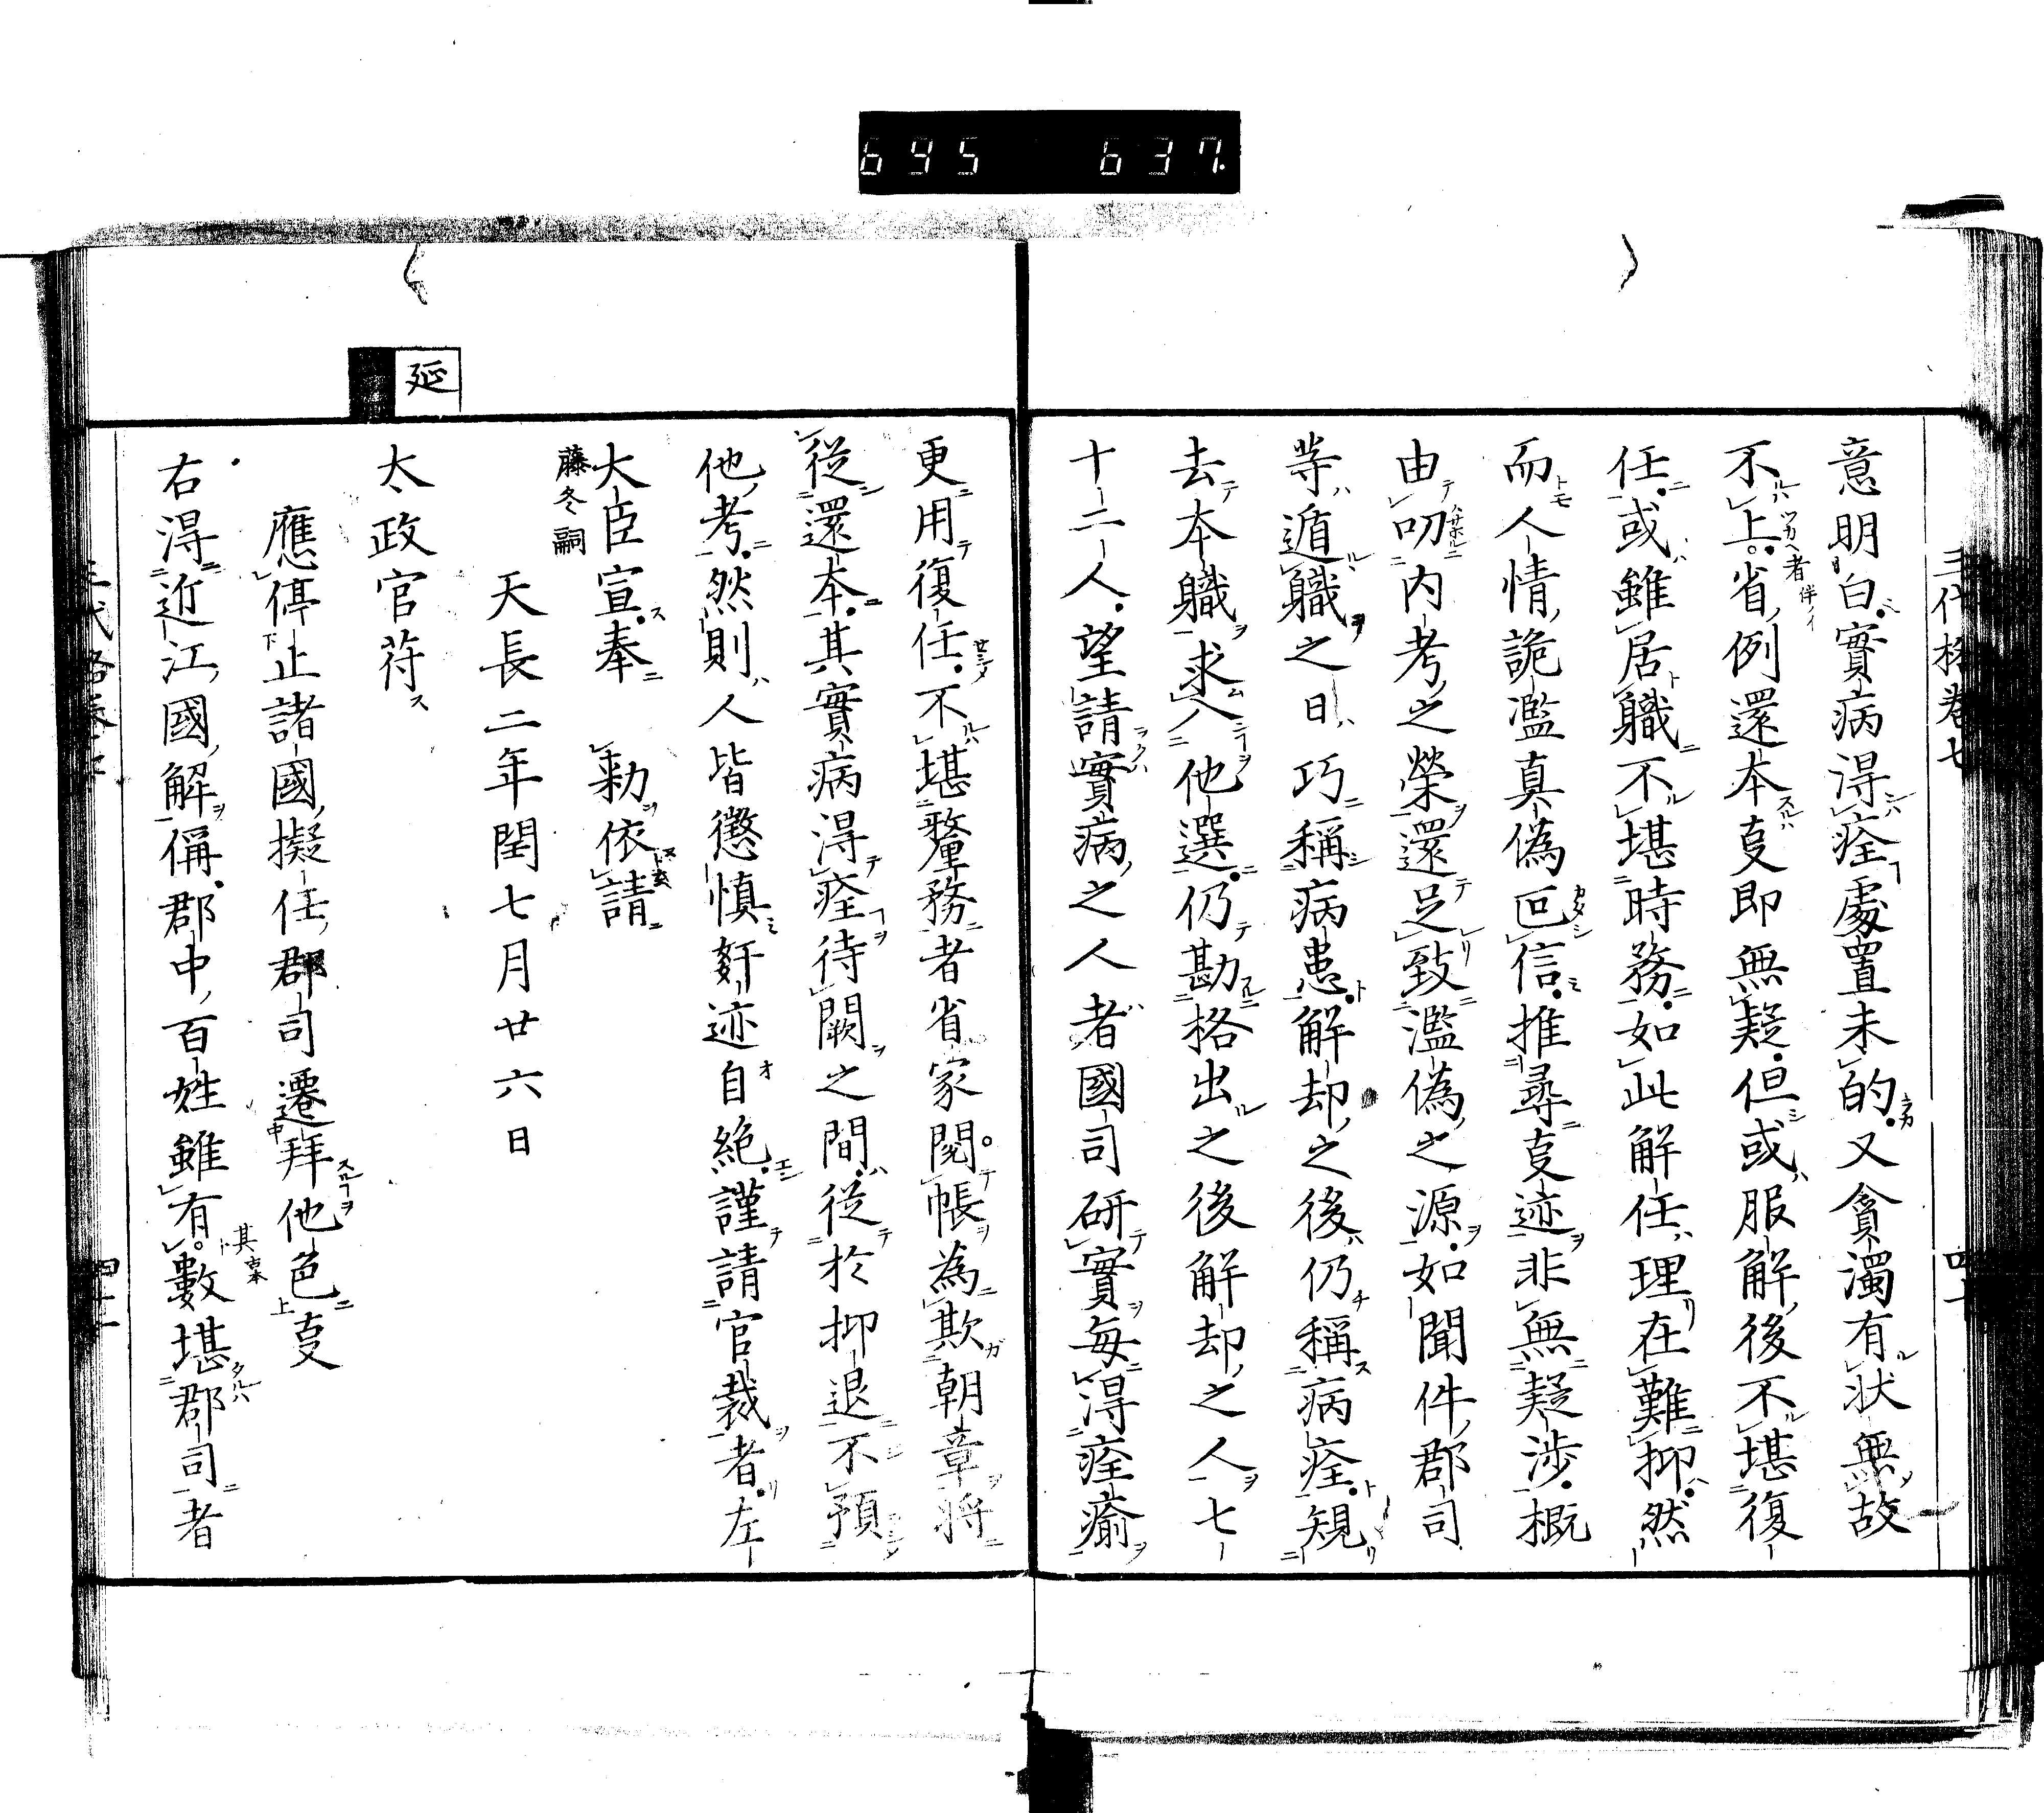 695 637.
三代格卷七
意明白實病得痊處置未的又貪濁有狀無故
不上省例還本㕝即無疑但或服解後不堪復
任或雖居職不堪時務如此解任理在難抑然
而人情詭濫真偽叵信推尋㕝迹非無疑涉概
由叨内考之榮還足致濫偽之源如聞件郡司
等遁職之日巧稱病患解却之後仍稱病痊規
去本職求入他選仍勘格出之後解却之人一七
十二人望請實病之人者國司研實每得痊瘉
更用復任不堪釐務者省家閱帳為欺朝章將
從還本其實病得痊待闕之間從於抑退不預
他考然則人皆懲慎姧迹自絶謹請官裁者左
大臣宣奉 勅依請
藤冬嗣
天長二年閏七月廿六日
延
太政官苻
應停止諸國擬任郡司遷拜他色㕝
右得近江國解偁郡中百姓雖有數堪郡司者